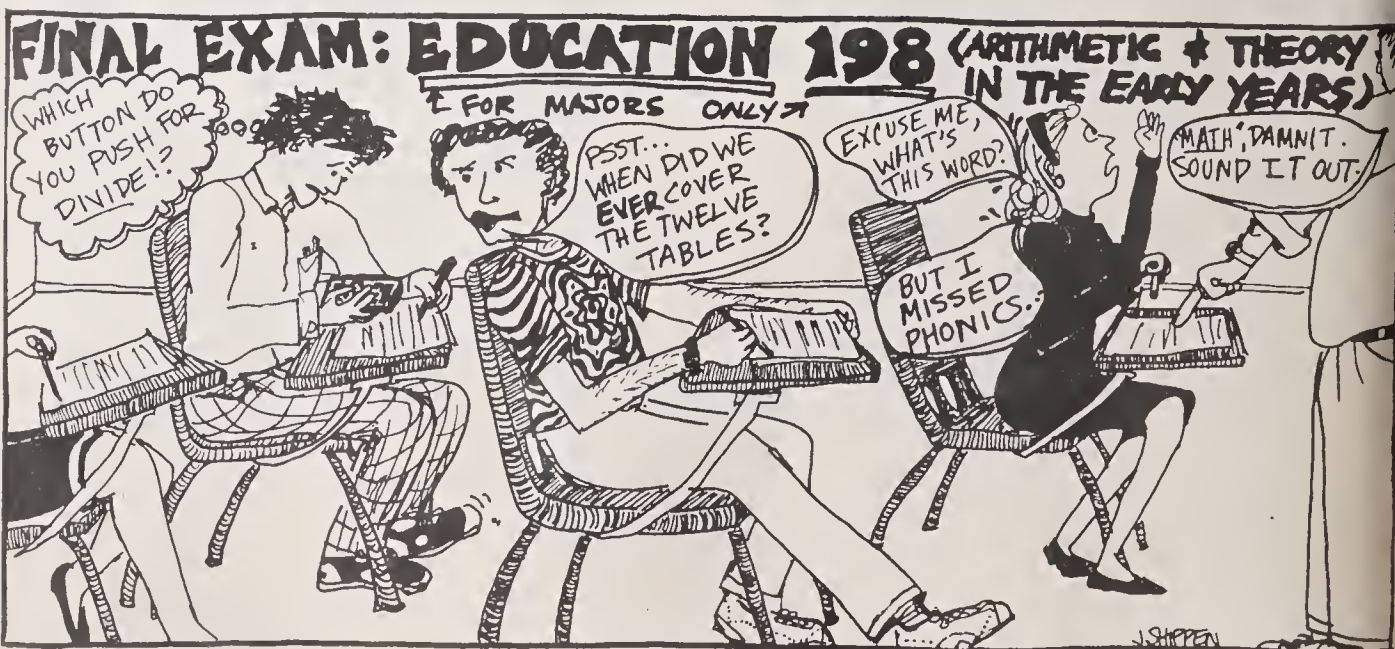 FINAL EXAM: EDUCATION 198 (ARITHMETIC & THEORY
IN THE EARLY YEARS)
↑ FOR MAJORS ONLY ↗
WHICH
BUTTON DO
YOU PUSH FOR
DIVIDE!?
PSST...
WHEN DID WE
EVER COVER
THE TWELVE
TABLES?
EXCUSE ME,
WHAT'S
THIS WORD?
"MATH", DAMNIT.
SOUND IT OUT.
BUT I
MISSED
PHONICS.
J. SHIPPEN